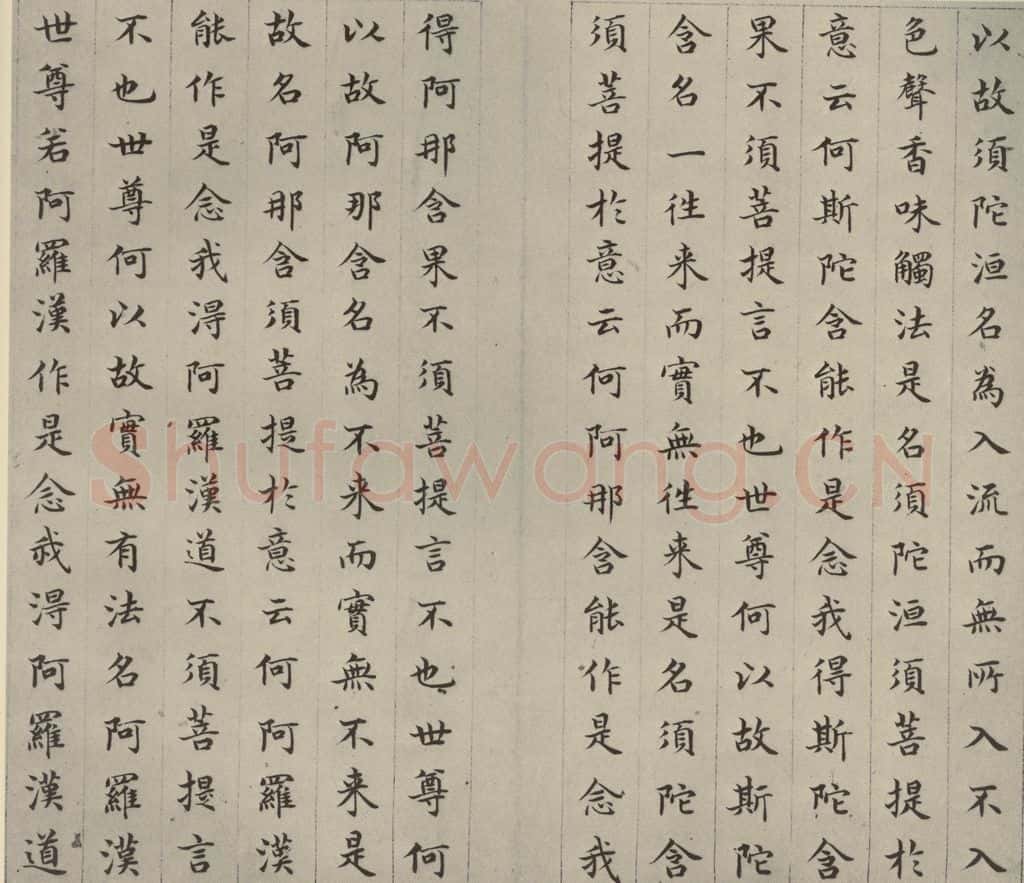 以故須陀洹名為入流而無所入不入
色聲香味觸法是名須陀洹須菩提於
意云何斯陀含能作是念我得斯陀含
果不須菩提言不也世尊何以故斯陀
含名一往来而實無往来是名須陀含
須菩提於意云何阿那含能作是念我
得阿那含果不須菩提言不也世尊何
以故阿那含名為不来而實無不来是
故名阿那含須菩提於意云何阿羅漢
能作是念我得阿羅漢道不須菩提言
不也世尊何以故實無有法名阿羅漢
世尊若阿羅漢作是念我得阿羅漢道
Shufawang.CN